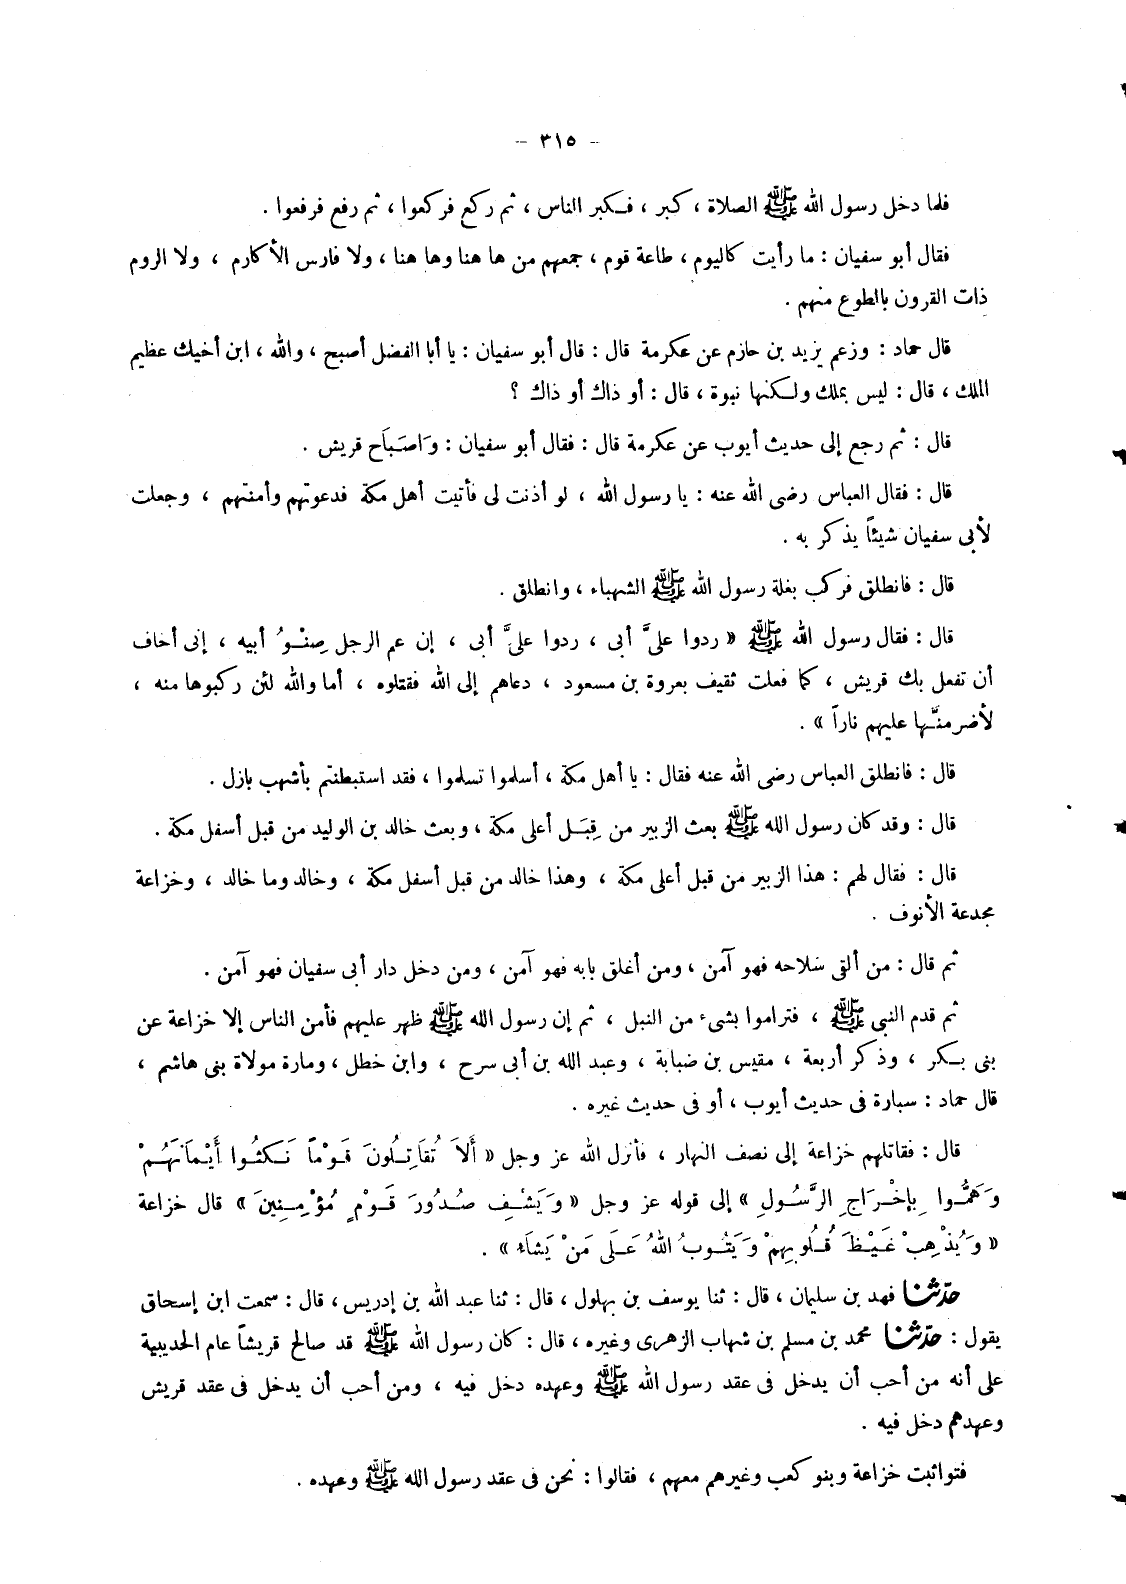 - ٣١٥ -
فلما دخل رسول الله ﷺ الصلاة ، كبر ، فكبر الناس ، ثم ركع فركعوا ، ثم رفع فرفعوا .
فقال أبو سفيان : ما رأيت كاليوم ، طاعة قوم ، جمعهم من ها هنا وها هنا ، ولا فارس الأكارم ، ولا الروم
ذات القرون بالطوع منهم .
قال حماد : وزعم يزيد بن حازم عن عكرمة قال : قال أبو سفيان : يا أبا الفضل أصبح ، والله ، ابن أخيك عظيم
الملك ، قال : ليس بملك ولكنها نبوة ، قال : أو ذاك أو ذاك ؟
قال : ثم رجع إلى حديث أيوب عن عكرمة قال : فقال أبو سفيان : وَاصَبَاَح قريش .
قال : فقال العباس رضى الله عنه : يا رسول الله ، لو أذنت لى فأتيت أهل مكة فدعوتهم وأمنتهم ، وجعلت
لأبى سفيان شيئاً يذكر به .
قال : فانطلق فركب بغلة رسول الله ﷺ الشهباء ، وانطلق .
قال : فقال رسول الله ﷺ « ردوا علىَّ أبى ، ردوا علىَّ أبى ، إن عم الرجل صِنْوُ أبيه ، إنى أخاف
أن تفعل بك قريش ، كما فعلت ثقيف بعروة بن مسعود ، دعاهم إلى الله فقتلوه ، أما والله لئن ركبوها منه ،
لأضرمنَّها عليهم ناراً » .
قال : فانطلق العباس رضى الله عنه فقال : يا أهل مكة ، أسلموا تسلموا ، فقد استبطنتم بأشهب بازل .
قال : وقد كان رسول الله ﷺ بعث الزبير من قِبَل أعلى مكة ، وبعث خالد بن الوليد من قبل أسفل مكة .
قال : فقال لهم : هذا الزبير من قبل أعلى مكة ، وهذا خالد من قبل أسفل مكة ، وخالد وما خالد ، وخزاعة
مجدعة الأنوف .
ثم قال : من ألقى سلاحه فهو آمن ، ومن أغلق بابه فهو آمن ، ومن دخل دار أبى سفيان فهو آمن .
ثم قدم النبى ﷺ ، فتراموا بشىء من النبل ، ثم إن رسول الله ﷺ ظهر عليهم فأمن الناس إلا خزاعة عن
بنى بكر ، وذكر أربعة ، مقيس بن ضبابة ، وعبد الله بن أبى سرح ، وابن خطل ، ومارة مولاة بنى هاشم ،
قال حماد : سبارة فى حديث أيوب ، أو فى حديث غيره .
قال : فقاتلهم خزاعة إلى نصف النهار ، فأنزل الله عز وجل « أَلاَ تُقَاتِلُونَ قَوْماً نَكَثُوا أَيْمَانَهُمْ
وَهَمُّوا بِإخْرَاجِ الرَّسُولِ » إلى قوله عز وجل « وَيَشْفِ صُدُورَ قَوْمٍ مُؤْمِنِينَ » قال خزاعة
« وَيُذْهِبْ غَيْظَ قُلُوبِهِمْ وَيَتُوبُ اللهُ عَلَى مَنْ يَشَاءُ » .
حدّثنا فهد بن سليمان ، قال : ثنا يوسف بن بهلول ، قال : ثنا عبد الله بن إدريس ، قال : سمعت ابن إسحاق
يقول : حدّثنا محمد بن مسلم بن شهاب الزهرى وغيره ، قال : كان رسول الله ﷺ قد صالح قريشاً عام الحديبية
على أنه من أحب أن يدخل فى عقد رسول الله ﷺ وعهده دخل فيه ، ومن أحب أن يدخل فى عقد قريش
وعهدهم دخل فيه .
فتواثبت خزاعة وبنو كعب وغيرهم معهم ، فقالوا : نحن فى عقد رسول الله ﷺ وعهده .